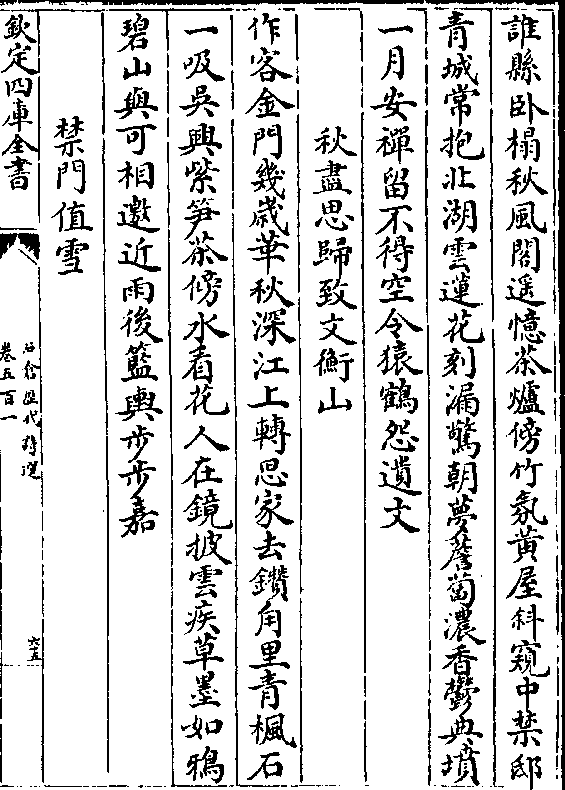 誰縣卧榻秋風閣遥憶茶爐傍竹氛黄屋斜窺中禁邸
青城常抱北湖雲蓮花刻漏驚朝夢薝蔔濃香鬱典墳
一月安禪留不得空令猿鶴怨遺文
秋盡思歸致文衡山
作客金門幾歳華秋深江上轉思家去鑽甪里青楓石
一吸吳興紫笋茶傍水看花人在鏡披雲疾草墨如鴉
碧山與可相邀近雨後籃輿步步嘉
禁門值雪
欽定四庫全書
石倉歴代詩選
卷五百一
六五